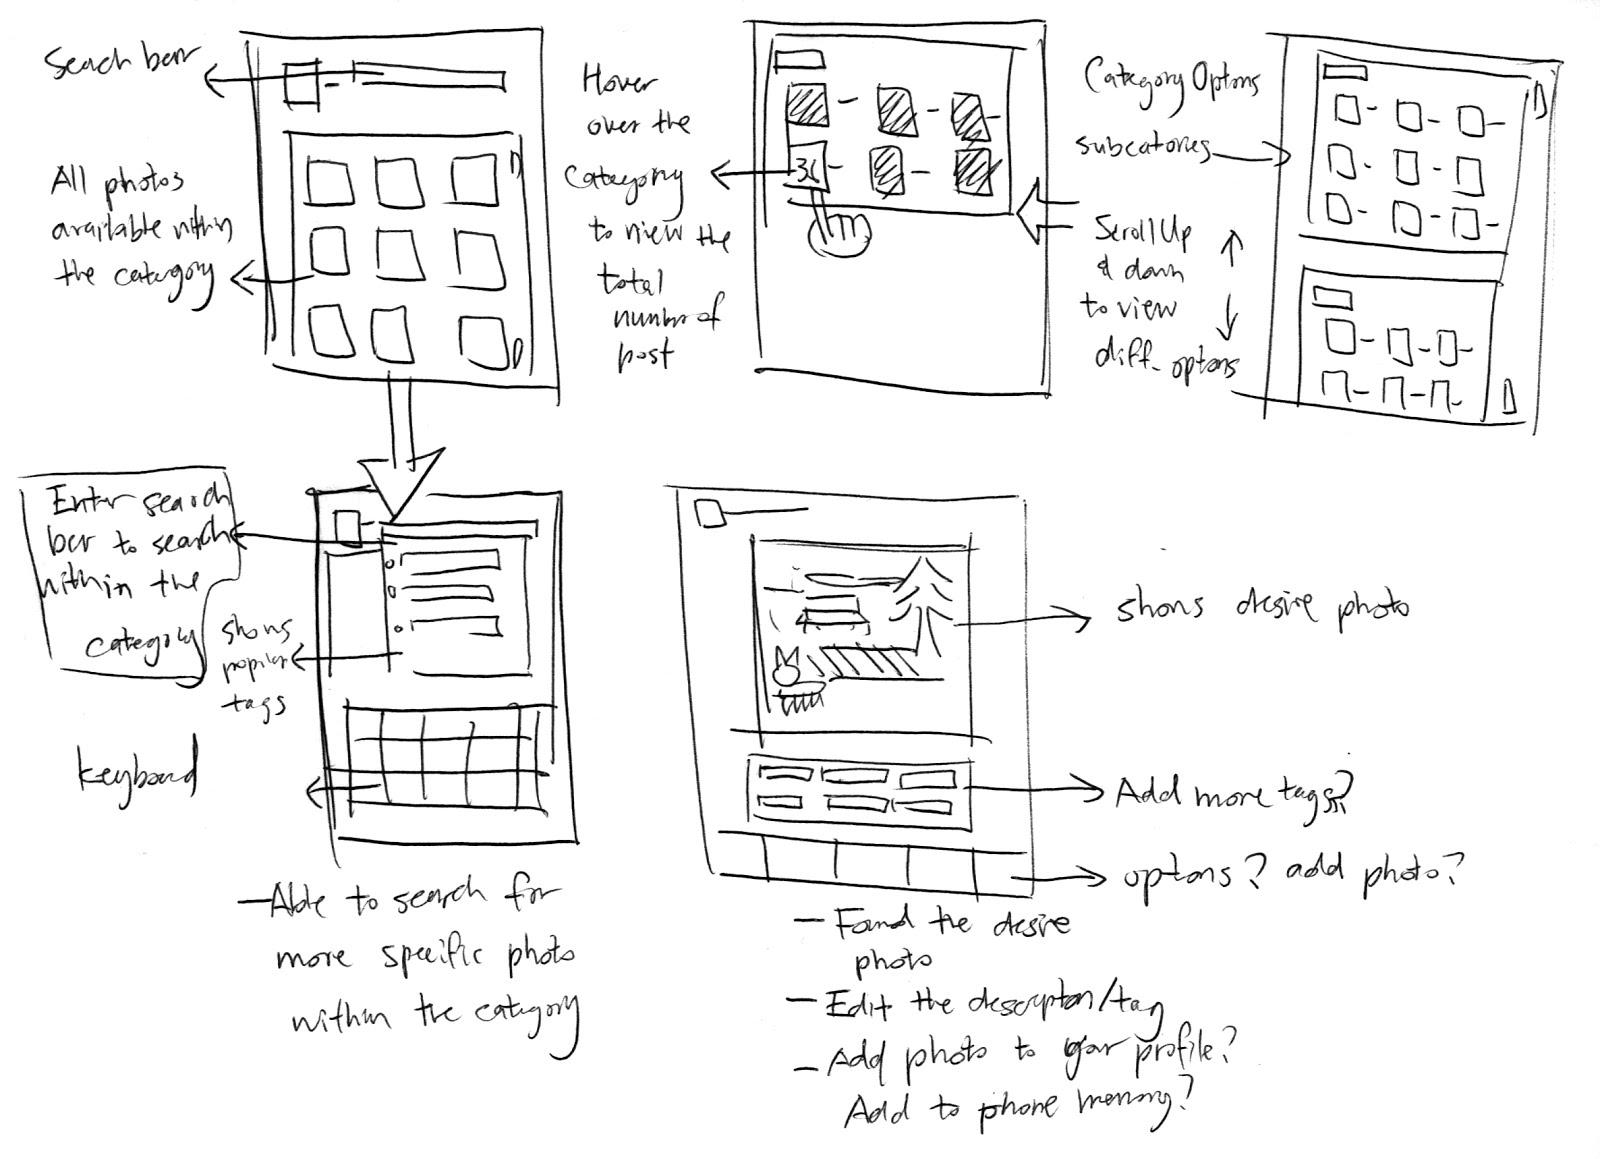 Seach bar
All photos
available within
the category
Hover
over the
category
to view the
total
number of
post
36
Category Options
subcatories
Scroll Up
& down
to view
diff. options
Enter search
bar to search
within the
category
shows
popular
tags
keyboard
- Able to search for
more specific photo
within the category
shows desire photo
Add more tags?
options? add photo?
- Found the desire
photo
- Edit the description/tag
- Add photo to your profile?
Add to phone memory?